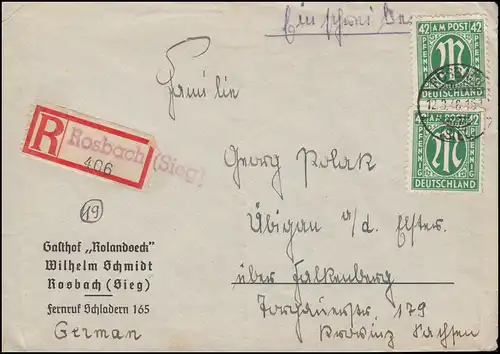 Einschrei
42 AM POST 42
M
PFENNIG PFENNIG
DEUTSCHLAND
12.3.46
42 AM POST 42
M
PFENNIG PFENNIG
DEUTSCHLAND
Familie
R
Rosbach (Sieg)
406
Georg Polak
Übigau a/d. Elster
über Falkenberg
Torgauerstr. 179
Provinz Sachsen
19
Gasthof „Rolandseck"
Wilhelm Schmidt
Rosbach (Sieg)
Fernruf Schladern 165
German